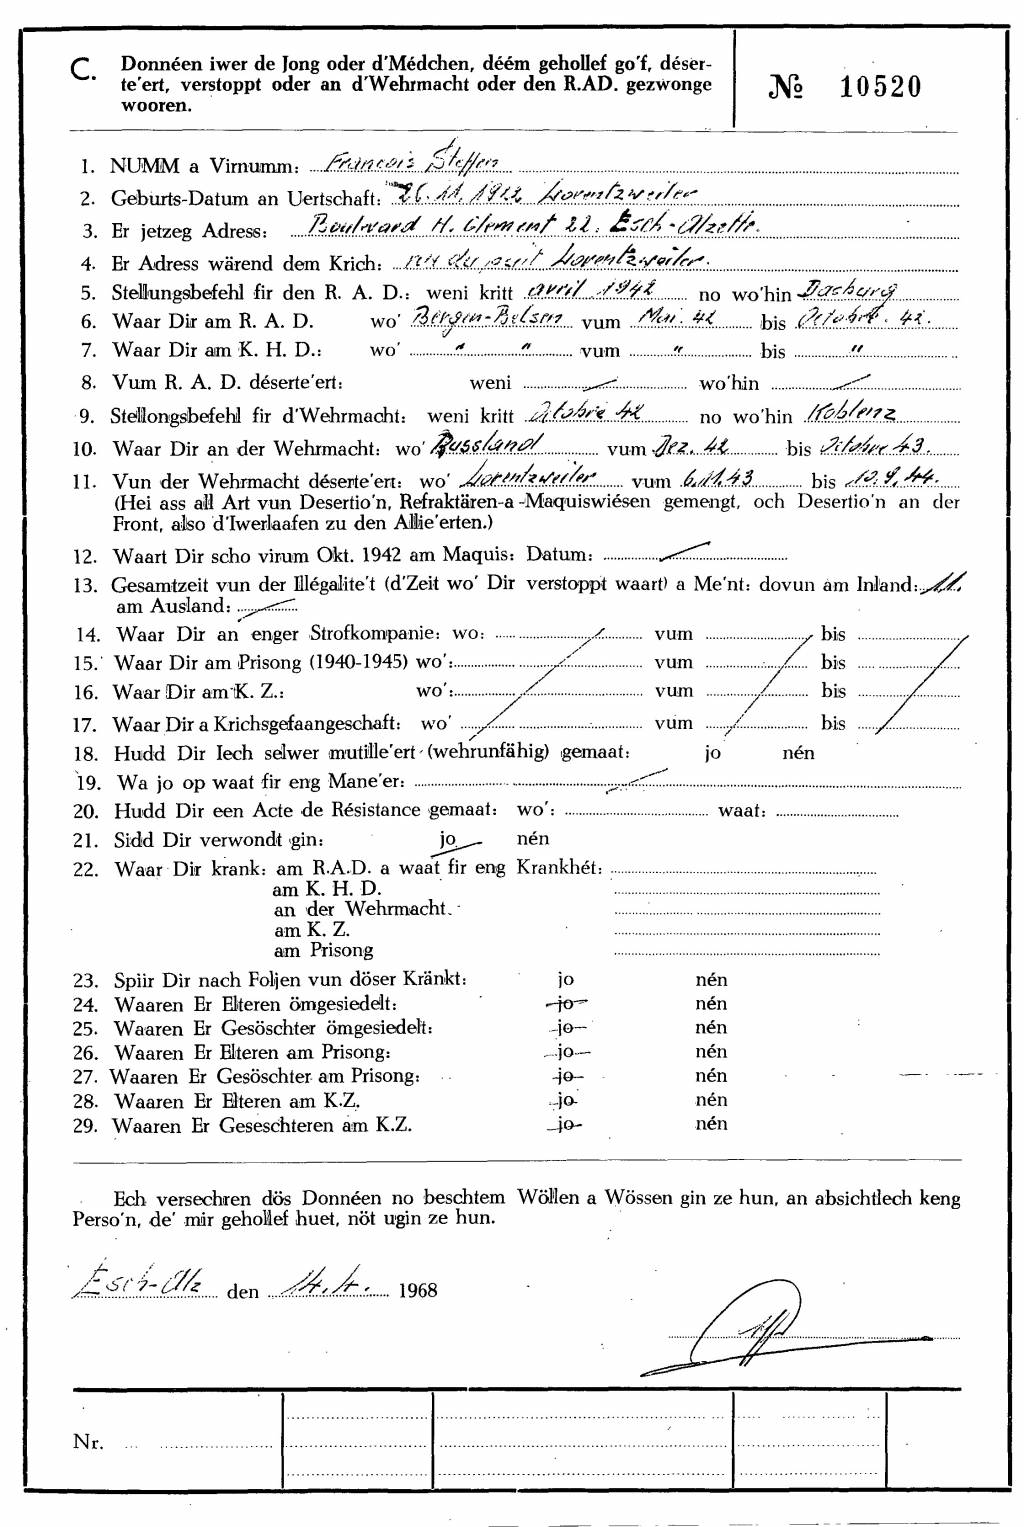 C. Donnéen iwer de Jong oder d'Médchen, déém gehollef go'f, déser-
te'ert, verstoppt oder an d'Wehrmacht oder den R.AD. gezwonge
wooren.
№ 10520
1. NUMM a Virnumm: Francois Steffen
2. Geburts-Datum an Uertschaft: 26.11.1922 Lorentzweiler
3. Er jetzeg Adress: Boulevard H. Clement 22. Esch-Alzette.
4. Er Adress wärend dem Krich: rue du puit Lorentzweiler.
5. Stellungsbefehl fir den R. A. D.: weni kritt avril 1942 no wo'hin Dasburg
6. Waar Dir am R. A. D. wo' Bergen-Belsen vum Mai. 42 bis Octobre 42.
7. Waar Dir am K. H. D.: wo' " " vum " bis "
8. Vum R. A. D. déserte'ert: weni — wo'hin —
9. Stelllongsbefehl fir d'Wehrmacht: weni kritt Octobre 42 no wo'hin Koblenz
10. Waar Dir an der Wehrmacht: wo' Russland vum Dez. 42 bis Octobre 43.
11. Vun der Wehrmacht déserte'ert: wo' Lorentzweiler vum 6.11.43 bis 10.9.44.
(Hei ass all Art vun Desertio'n, Refraktären-a-Maquiswiésen gemengt, och Desertio'n an der
Front, also d'Iwerlaafen zu den Allie'erten.)
12. Waart Dir scho virum Okt. 1942 am Maquis: Datum: —
13. Gesamtzeit vun der Illégalite't (d'Zeit wo' Dir verstoppt waart) a Me'nt: dovun am Inland: 11.
am Ausland: —
14. Waar Dir an enger Strofkompanie: wo: vum bis
15. Waar Dir am Prisong (1940-1945) wo': vum bis
16. Waar Dir am K. Z.: wo': vum bis
17. Waar Dir a Krichsgefaangeschaft: wo' vum bis
18. Hudd Dir Iech selwer mutille'ert (wehrunfähig) gemaat: jo nén
19. Wa jo op waat fir eng Mane'er: —
20. Hudd Dir een Acte de Résistance gemaat: wo': waat:
21. Sidd Dir verwondt gin: jo nén
22. Waar Dir krank: am R.A.D. a waat fir eng Krankhét:
am K. H. D.
an der Wehrmacht.
am K. Z.
am Prisong
23. Spiir Dir nach Foljen vun döser Kränkt: jo nén
24. Waaren Er Elteren ömgesiedelt: jo nén
25. Waaren Er Gesöschter ömgesiedelt: jo nén
26. Waaren Er Elteren am Prisong: jo nén
27. Waaren Er Gesöschter am Prisong: jo nén
28. Waaren Er Elteren am K.Z. jo nén
29. Waaren Er Geseschteren am K.Z. jo nén
Ech versechren dös Donnéen no beschtem Wöllen a Wössen gin ze hun, an absichtlech keng
Perso'n, de' mir gehollef huet, nöt ugin ze hun.
Esch-Alz den 14.4. 1968
Nr.